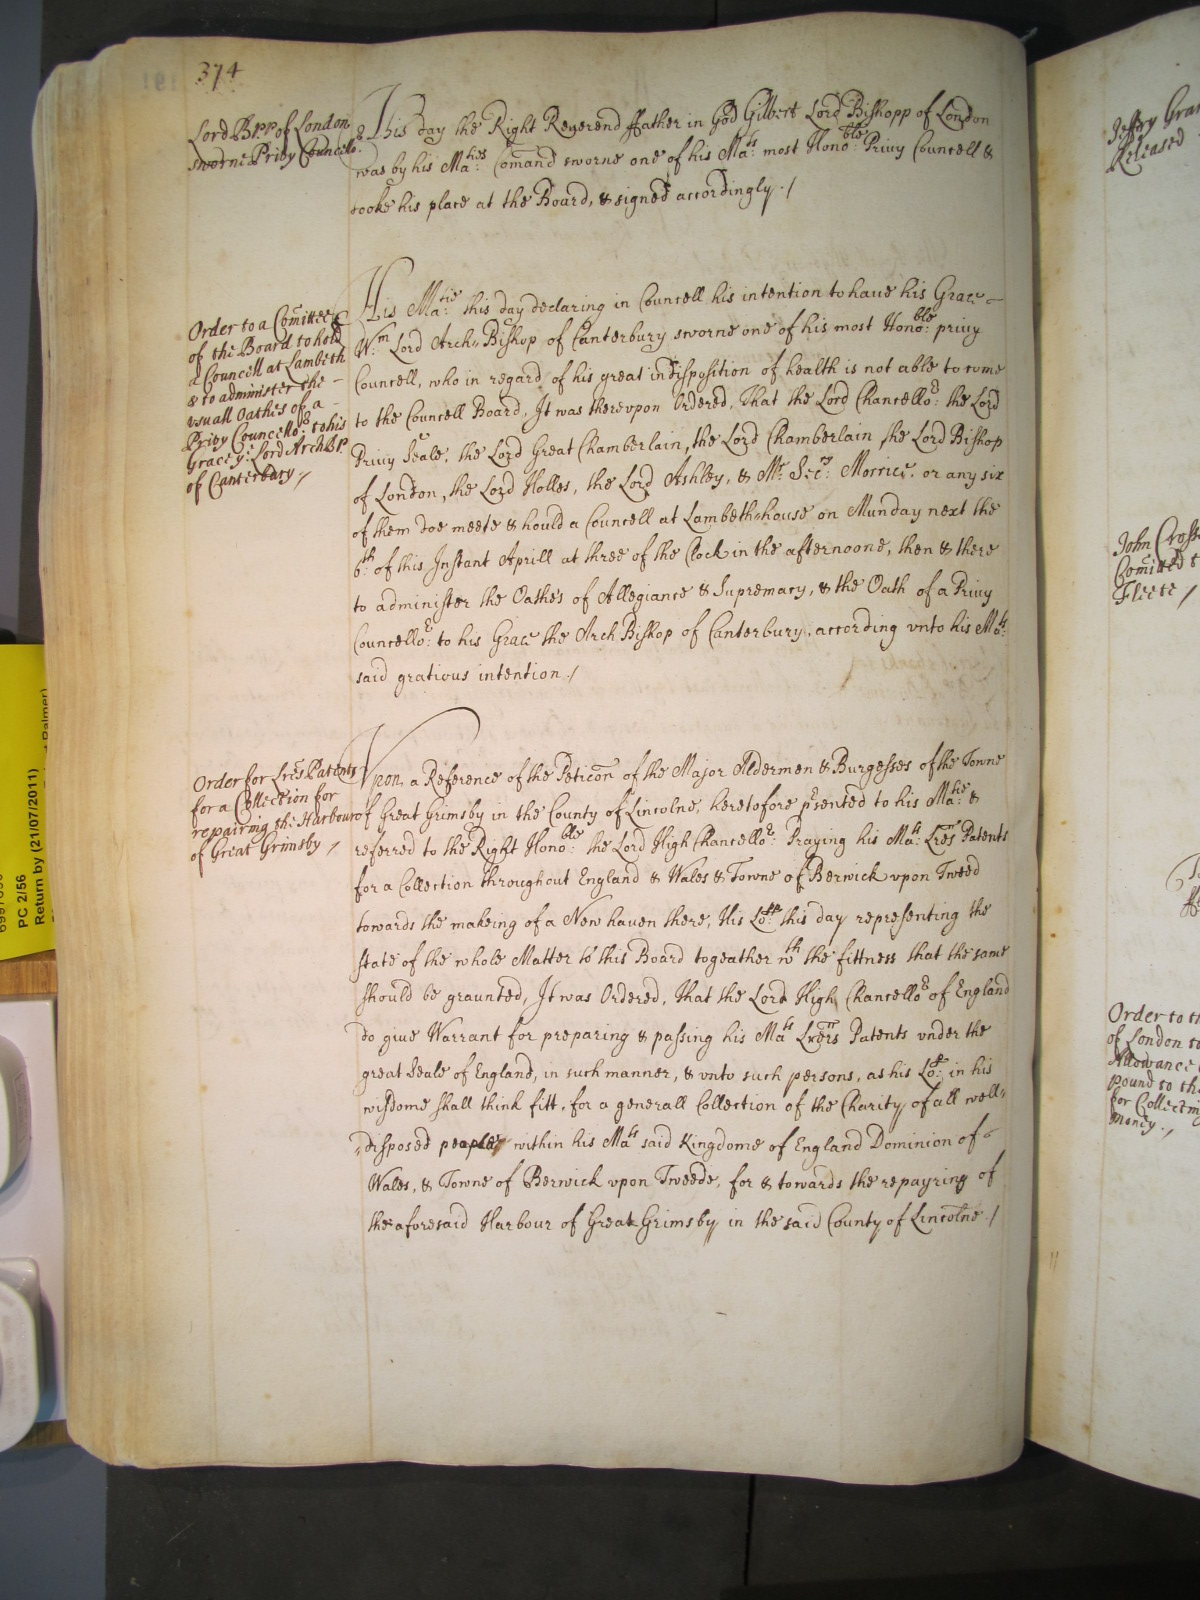 374
Lord Bpp of London
sworne Privy Councello:r
This day the Right Reverend ffather in God Gilbert Lord Bishopp of London
was by his Ma:ties Comand sworne one of his Ma:ts most Hono:ble Privy Councell &
tooke his place at the Board, & signed accordingly ./
Order to a Comittee
of the Board to hold
a Councell at Lambeth
& to administer the –
usuall Oathes of a –
Privy Councello:r to his
Grace ye: Lord ArchBp
of Canterbury ./
His Ma:tie this day declaring in Councell his intention to haue his Grace –
W:m Lord Arch-Bishop of Canterbury sworne one of his most Hono:ble privy
Councell, who in regard of his great indisposition of health is not able to come
to the Councell Board, It was therevpon Ordered, That the Lord Chancello:r the Lord
Privy Seale, the Lord Great Chamberlain, the Lord Chamberlain, the Lord Bishop
of London, the Lord Holles, the Lord Ashley, & Mr Sec:ry Morrice, or any six
of them doe meete & hould a Councell at Lambeth-house on Munday next the
6:th of this Instant Aprill at three of the Clock in the afternoone, then & there
to administer the Oathes of Allegiance & Supremacy, & the Oath of a Privy
Councello:r to his Grace the Arch Bishop of Canterbury, according vnto his Ma:ts
said gratious intention ./
Order for Lres Patents
for a Collection for
repairing the Harbour
of Great Grimsby /
Vpon a Reference of the Peticon of the Major Aldermen & Burgesses of the Towne
of Great Grimsby in the County of Lincolne, heretofore p'sented to his Ma:tie &
referred to the Right Hono:ble the Lord High Chancello:r Praying his Ma:ts Lres Patents
for a Collection throughout England & Wales & Towne of Berwick vpon Tweed
towards the makeing of a New haven there, His Lo:pp this day representing the
state of the whole Matter to this Board togeather wth the fittness that the same
should be graunted, It was Ordered, That the Lord High Chancello:r of England
do giue Warrant for preparing & passing his Mats Lrers Patents vnder the
great Seale of England, in such manner, & vnto such persons, as his Lo:p in his
wisdome shall think fitt, for a generall Collection of the Charity of all well-
-disposed people within his Mats said Kingdome of England Dominion of
Wales, & Towne of Berwick vpon Tweede, for & towards the repayring of
the aforesaid Harbour of Great Grimsby in the said County of Lincolne ./
PC 2/56
Return by (21/07/2011)
Palmer)
Jeffry Gra
Released
John Cross
Comitted t
Fleete /
Order to th
of London to
Allowance
pound to th
for Collectin
money ./